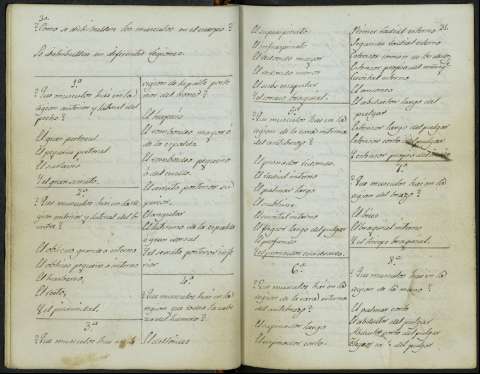 30.
¿Como se distribullen los musculos en el cuerpo?
Se distribullen en diferentes regiones.
1.ª
¿Que musculos hai en la
region anterior y lateral del
pecho?
El gran pectoral
El pequeño pectoral
El subclavio
Y el gran serrato.
2.ª
¿Que musculos hai en la re
gion anterior y lateral del
vientre?
El oblicuo grande o esterno
El oblicuo pequeño o interno
El trasberso
El recto,
Y el piramidal.
3.ª
¿Que musculos hai en la
region de la parte poste
rior del
El trapecio
El romboideo mayor ó
de la espalda
El romboideo pequeño
ó del cuello.
El serrato posterior su
perior.
El angular
El
o gran dorsal
Y el serrato posterior infe
rior
4.ª
¿Que musculos hai en la
region que rodea la cabe
za del humero?
El deltoides
El supraespinato
El infraespinato
El redondo mayor
El redondo menor
El sub escapular
Y el coraco braquial.
5.ª
¿Que musculos hai en la
region de la cara interna
del antebrazo?
El pronador redondo
El radial interno
El palmar largo
El sublime
El cuvital interno
El flegsor largo del pulgar
El profundo
Y el pronador cuadrado.
6.ª
¿Que musculos hai en la
region de la cara esterna
del antebrazo?
El supinador largo
El supinador corto.
31.
Primer radial esterno
Segundo radial esterno
Estensor comun de los dedos
Estensor propio del
Cuvital esterno
El anconeo
El abductor largo del
pulgar
Estensor largo del pulgar
Estensor corto del pulgar
Y estensor propio del
7.ª
¿Que musculos hai en la
region del brazo?
El biceo
El braquial interno
Y el triceps braquial.
8.ª
¿Que musculos hai en la
region de la mano?
El palmar corto
El abductor del pulgar
corto del pulgar
del pulgar